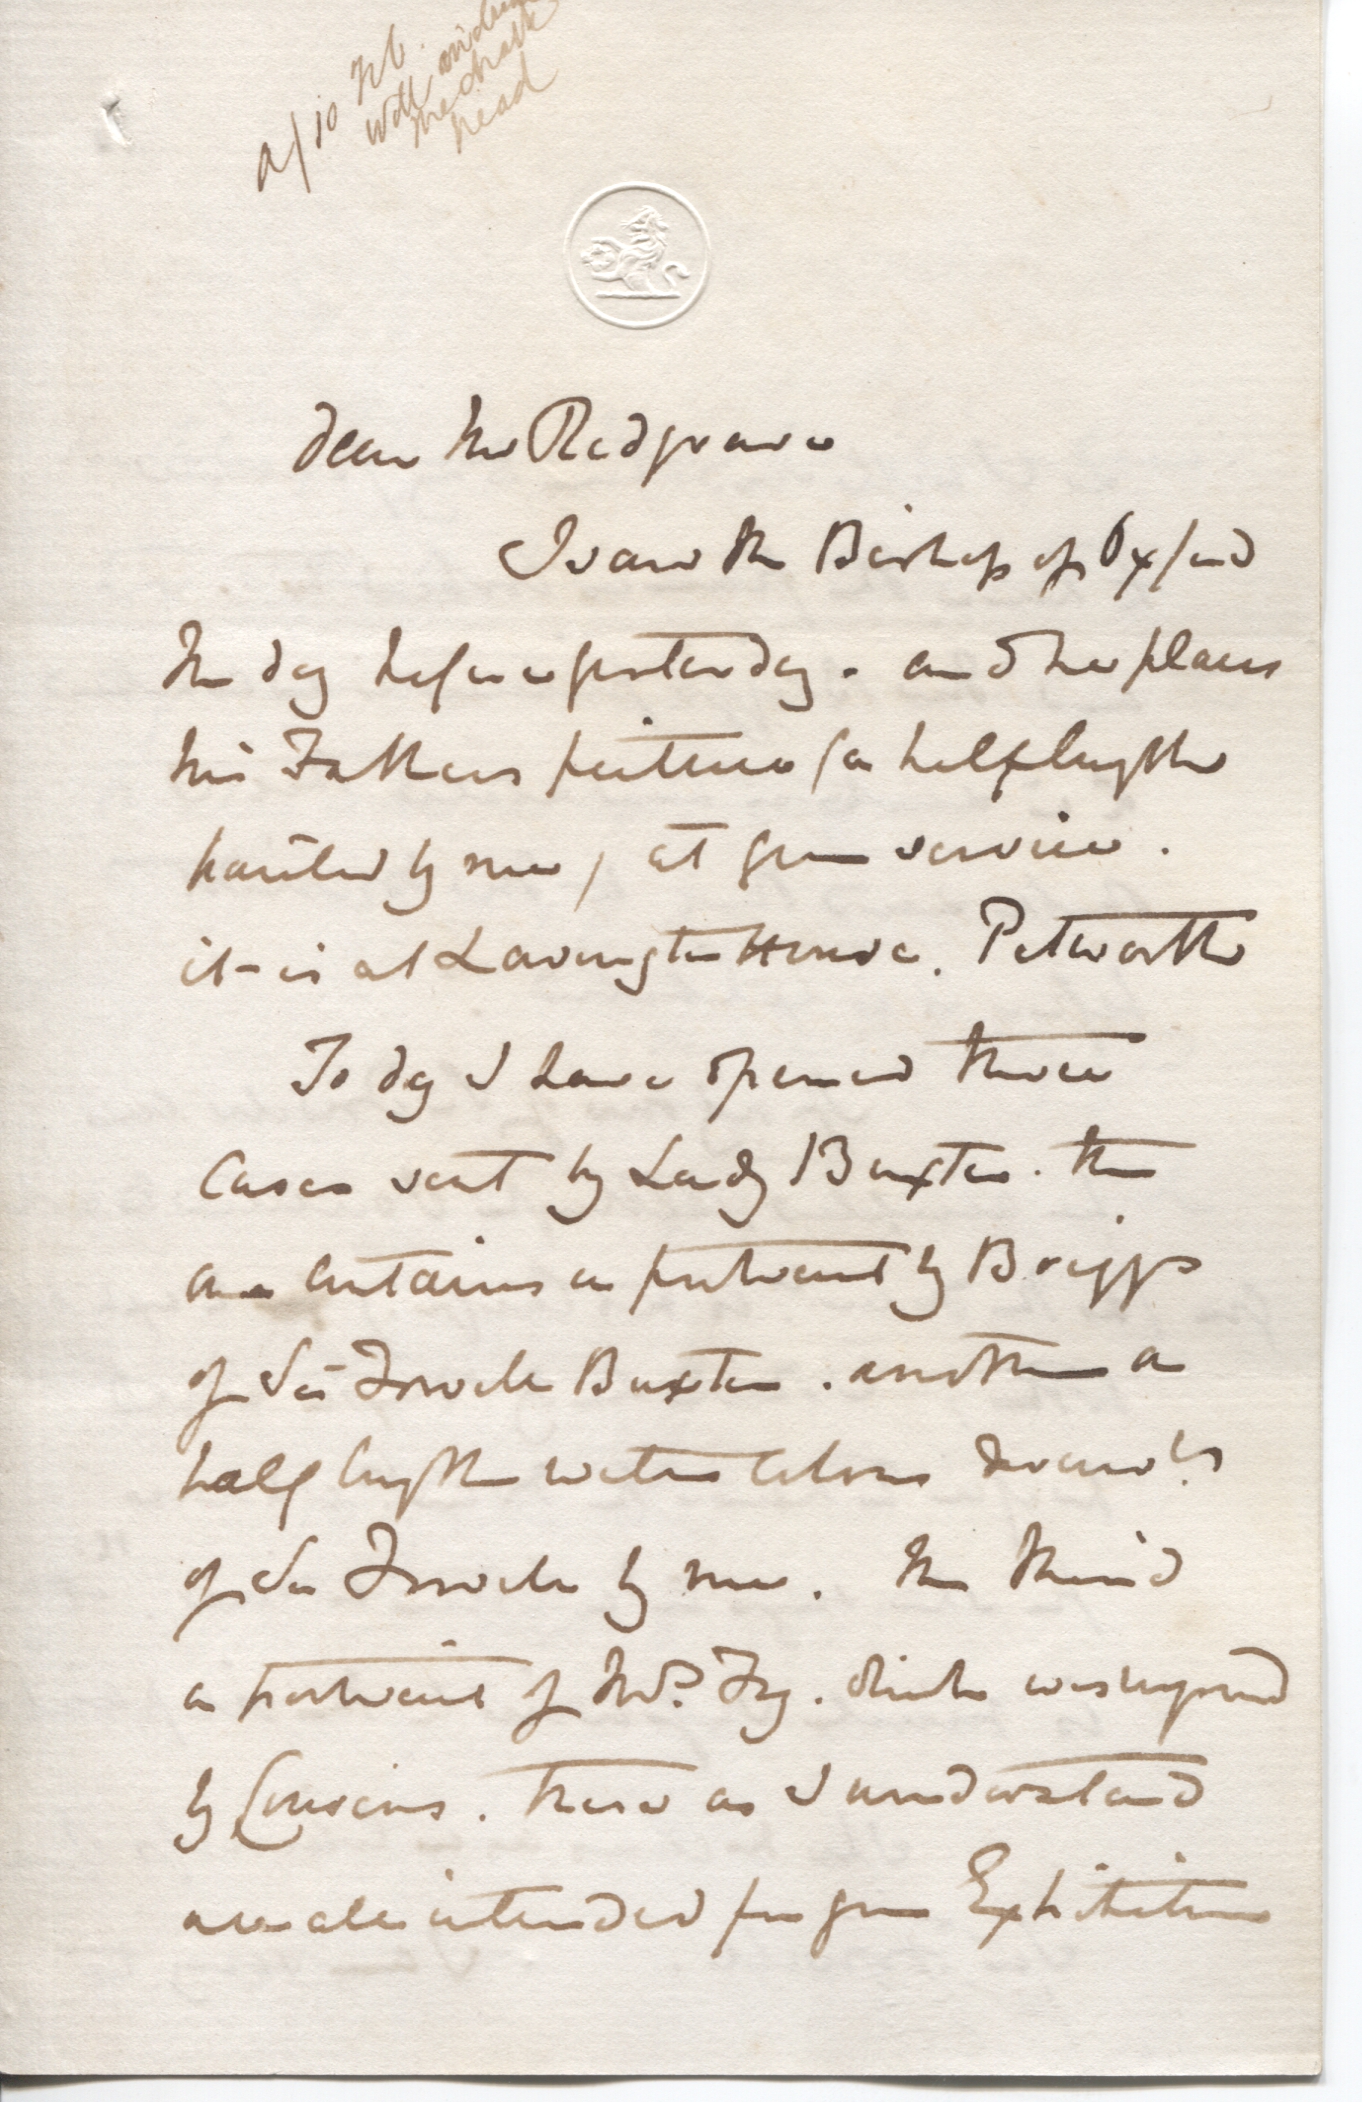 a/10 Feb.
Will
the chalk
head
Dear Mr Redgrave
I saw the Bishop of Oxford
the day before yesterday. and he places
his Fathers picture (a half length
painted by me) at your service.
it is at Lavington House. Petworth
To day I have opened three
Cases sent by Lady Buxton. the
one contains a portrait by Briggs
of Sir Fowell Buxton. another a
half length water colour draw.g
of Sir Fowell by me. the third
a portrait of Mrs. Fry. which was engraved
by Cousins. these as I understand
are all intended for your Exhibition